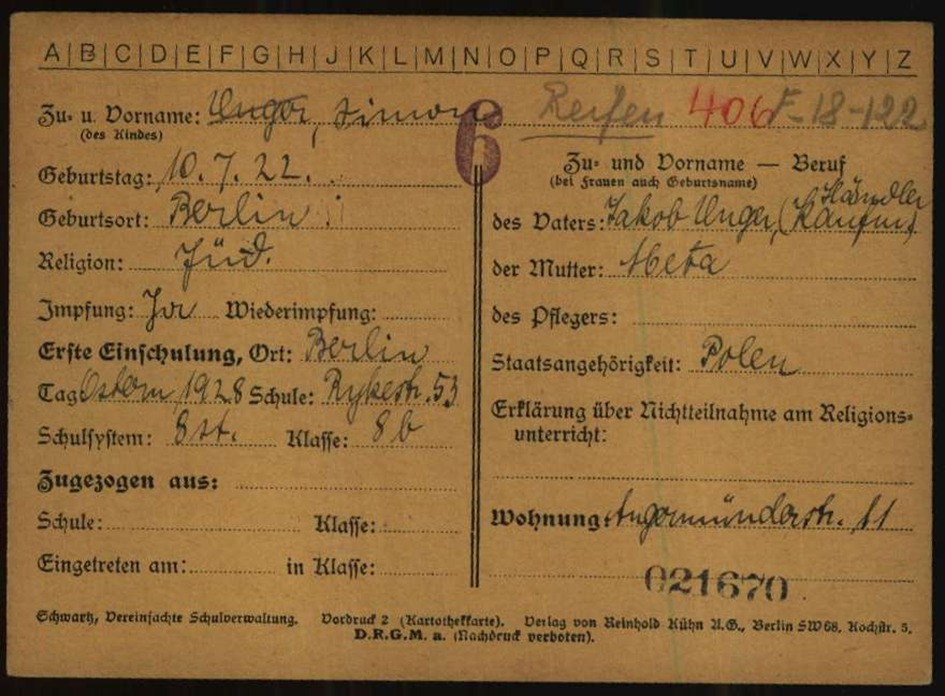 A|B|C|D|E|F|G|H|J|K|L|M|N|O|P|Q|R|S|T|U|V|W|X|Y|Z
Zu- u. Vorname: Unger, Simon
(des Kindes)
6
Reifen 406 F-18-122
Geburtstag: 10. 7. 22.
Geburtsort: Berlin
Religion: Jüd.
Impfung: Ja Wiederimpfung:
Erste Einschulung, Ort: Berlin
Tag Ostern 1928 Schule: Rykestr. 53
Schulsystem: 8st. Klasse: 8b
Zugezogen aus:
Schule: Klasse:
Eingetreten am: in Klasse:
Zu- und Vorname — Beruf
(bei Frauen auch Geburtsname)
Händler
des Vaters: Jakob Unger, (Kaufm)
der Mutter: Meta
des Pflegers:
Staatsangehörigkeit: Polen
Erklärung über Nichtteilnahme am Religions-
unterricht:
Wohnung: Angermünderstr. 11
021670
Schwartz, Vereinfachte Schulverwaltung. Vordruck 2 (Kartothekkarte). Verlag von Reinhold Kühn A.G., Berlin SW68, Kochstr. 5.
D.R.G.M. a. (Nachdruck verboten).